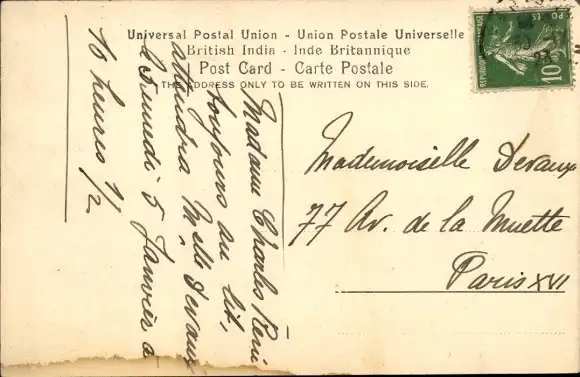 Universal Postal Union - Union Postale Universelle
British India - Inde Britannique
Post Card - Carte Postale
THE ADDRESS ONLY TO BE WRITTEN ON THIS SIDE.
POSTES
10
Madame Charles
toujours au lit,
attendra Melle Devaux
le Samedi 5 Janvier à
16 heures 1/2
Mademoiselle Devaux
77 Av. de la Muette
Paris XVI